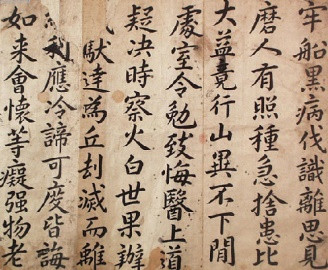 牢船黒病伐識離思見
磨人有照種急捨患比
大益竟行山異不下閒
處室令勉發悔醫上道
疑决時察火白世果辦
馱達為丘刦滅而離
利應冷諦可度皆誨
如来會懷等癡强物老